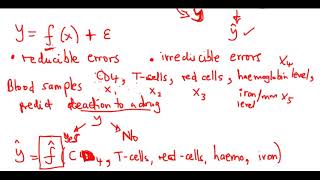 y ŷ
y = f (x) + ε
• reducible errors • irreducible errors
Blood samples CD4, T-cells, red cells, haemoglobin level,
x1 x2 x3 x4
predict reaction to a drug iron/ level x5
y
Yes No
ŷ = f̂ (C 4, T-cells, red-cells, haemo, iron)